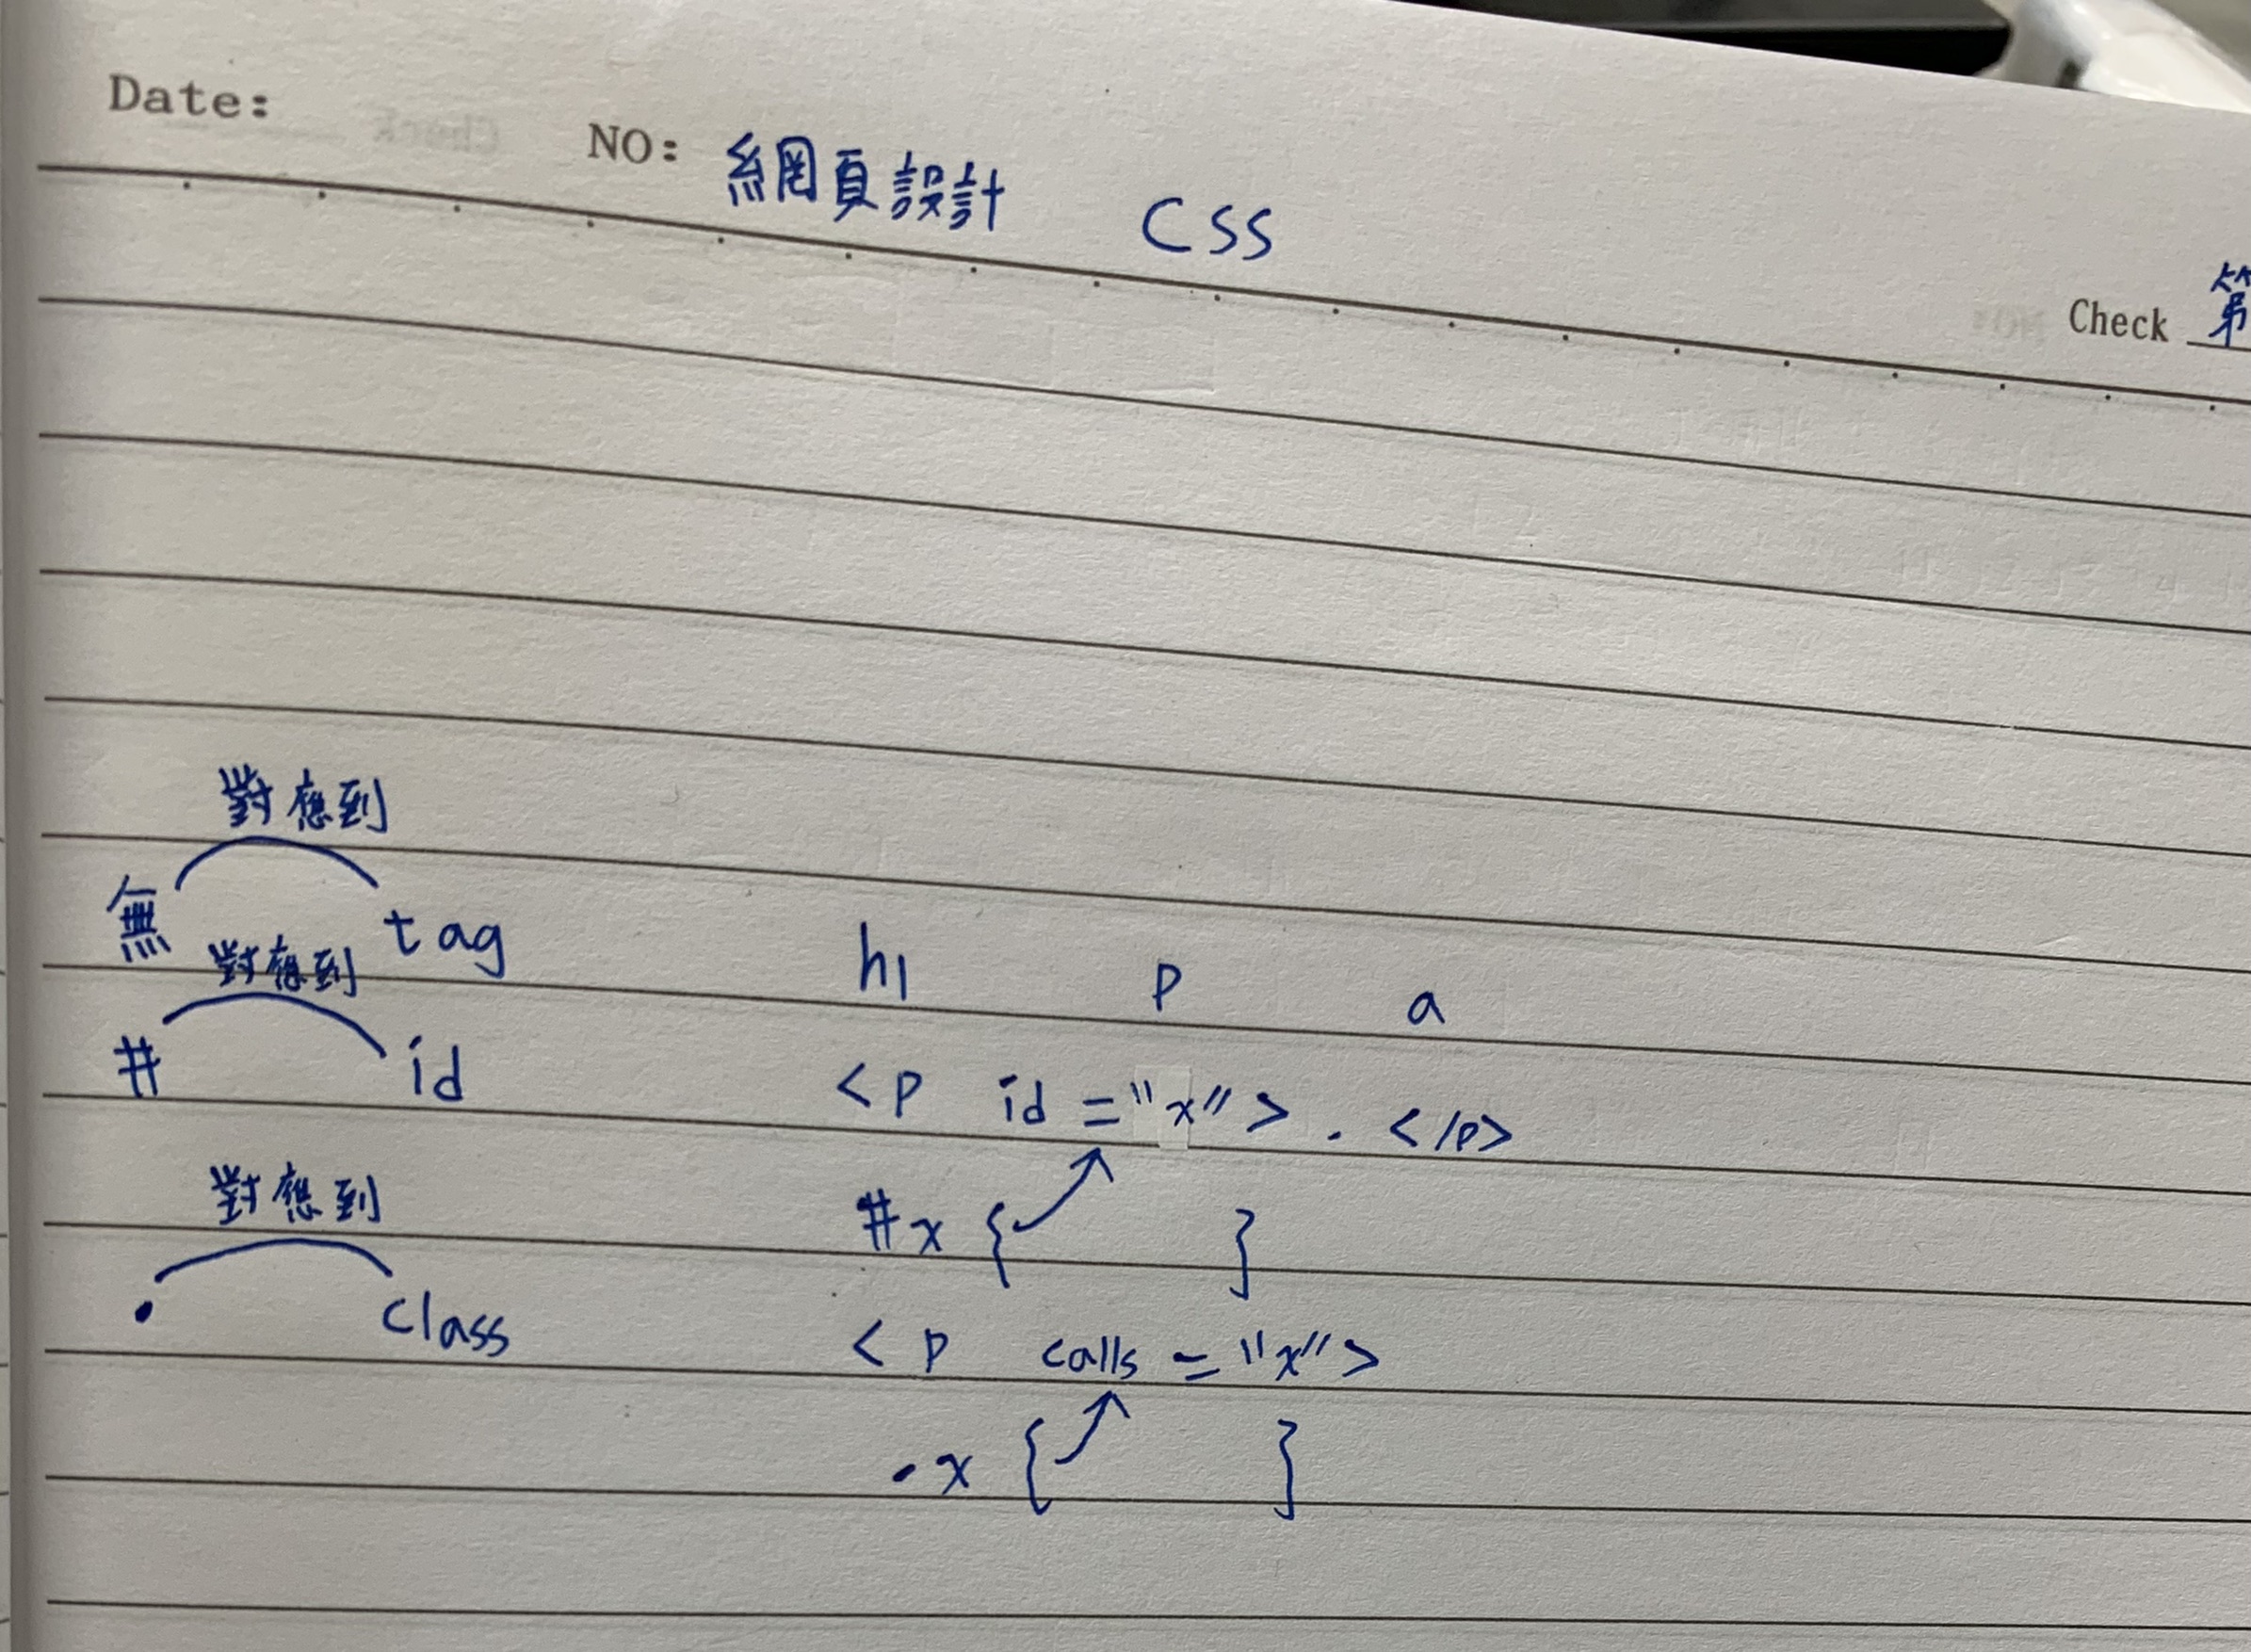 Date: NO: 網頁設計 CSS
Check 第
對應到
無 tag h1 p a
對應到
# id <p id="x"> . </p>
#x { }
對應到
. class <p calls="x">
.x { }